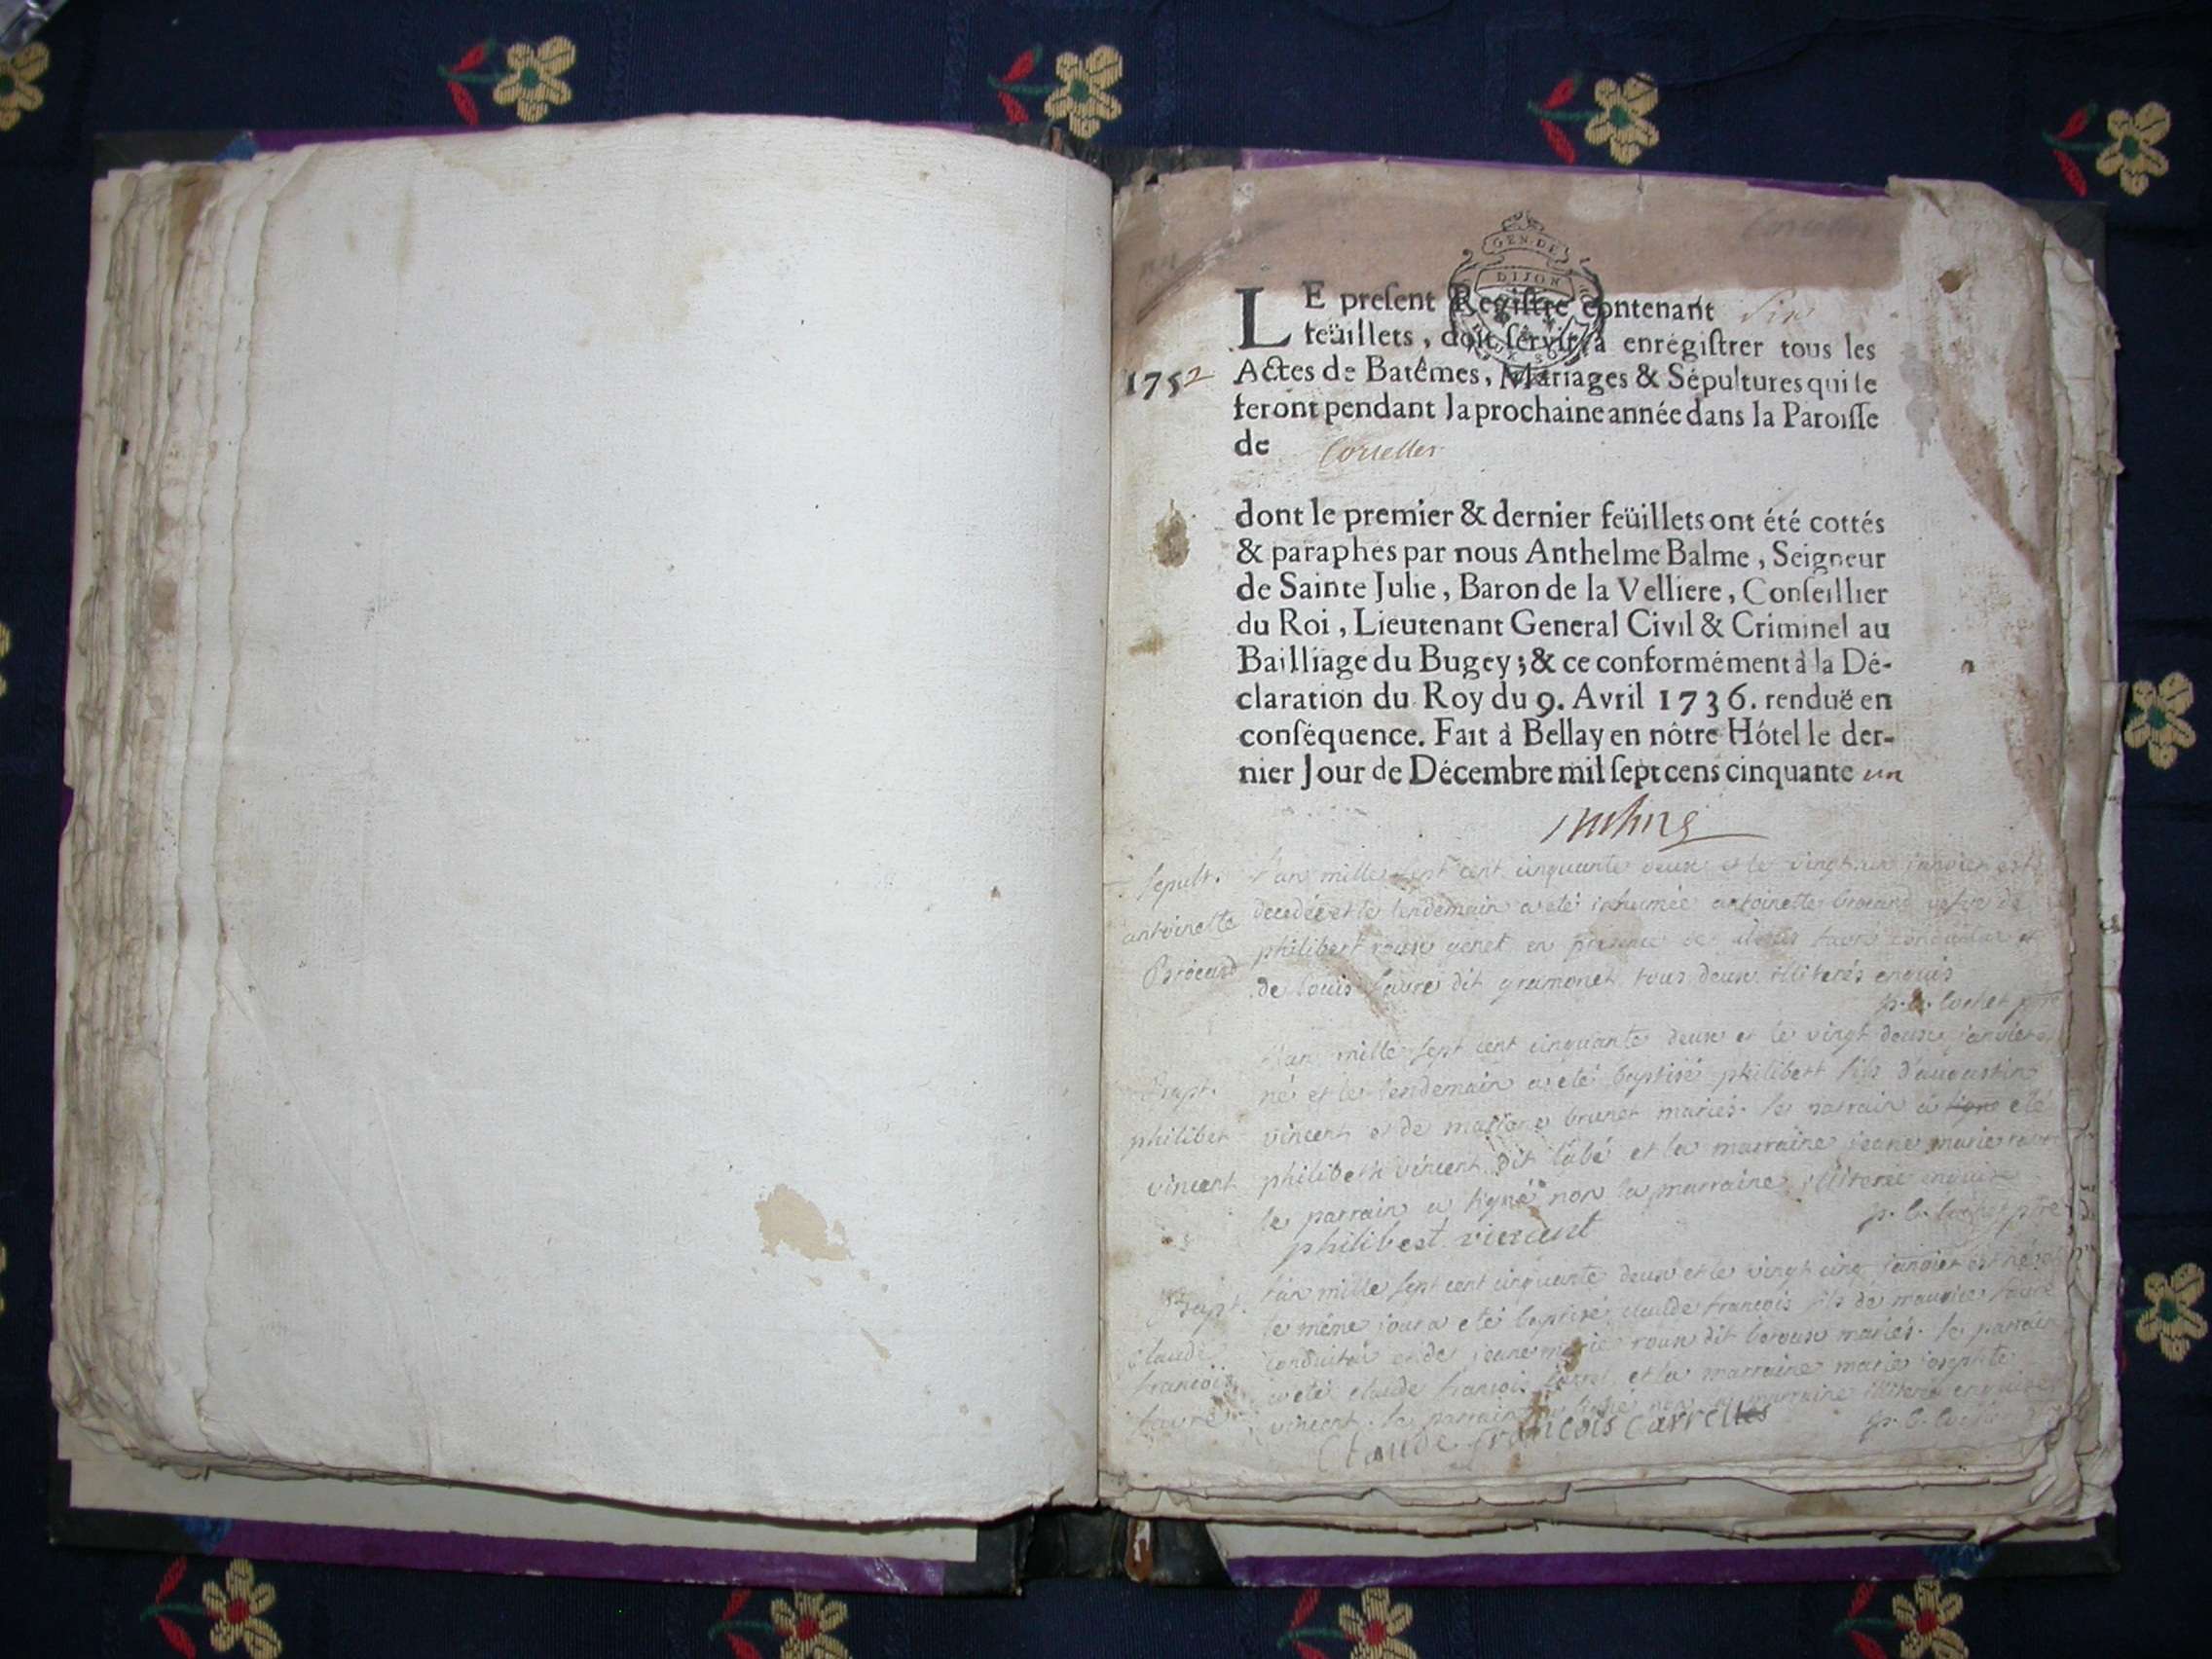 GEN. DE
DIJON
LE preſent Regiſtre contenant Six
feüillets, doit ſervir à enrégiſtrer tous les
1752 Actes de Batêmes, Mariages & Sépultures qui ſe
feront pendant la prochaine année dans la Paroiſſe
de Corcelles
dont le premier & dernier feüillets ont été cottés
& paraphés par nous Anthelme Balme, Seigneur
de Sainte Julie, Baron de la Velliere, Conſeillier
du Roi, Lieutenant General Civil & Criminel au
Bailliage du Bugey; & ce conformément à la Dé-
claration du Roy du 9. Avril 1736. renduë en
conſéquence. Fait à Bellay en nôtre Hôtel le der-
nier Jour de Décembre mil ſept cens cinquante un
sepult. l'an mille sept cent cinquante deux et le vingt un janvier est
antoinette decedée et le lendemain a eté inhumée antoinette brocard vefve de
Brocard philibert roux genet en presence de faure conduitai et
de louis faure dit gramonet tous deux illiterés enquis
p. c. cochet ptre
l'an mille sept cent cinquante deux et le vingt deux janvier
Bapt. né et le lendemain a eté baptisé philibert fils d'augustin
philibert vincent et de brunet mariés. le parrain a eté
vincent philibert vincent dit labé et la marraine jeane marie
le parrain a signé non la marraine illiterée enquise
philibert vincent p. c. cochet ptre
Bapt. l'an mille sept cent cinquante deux et le vingt cinq janvier est né et
le même jour a eté baptisé claude françois fils de maurice faure
claude conduitai et de jeane marie roux dit mariés. le parrain
françois a eté claude françois et la marraine marie josephte
faure vincent. le parrain a signé non la marraine illiterée enquise
Claude francois Carrelles p. c. cochet